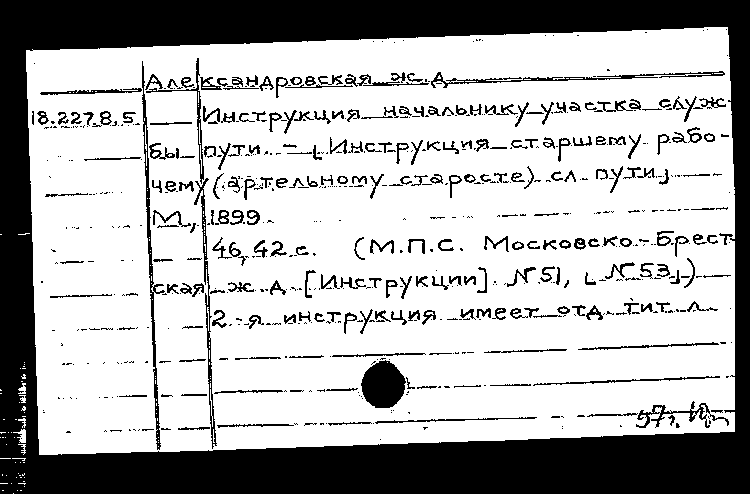 Александровская ж. д.
18.227.8.5 Инструкция начальнику участка служ-
бы пути. – [Инструкция старшему рабо-
чему (артельному старосте) сл. пути]
М., 1899.
46, 42 с. (М.П.С. Московско-Брест-
ская ж. д. [Инструкции]. № 51, [№ 53])
2-я инструкция имеет отд. тит. л.
57г.